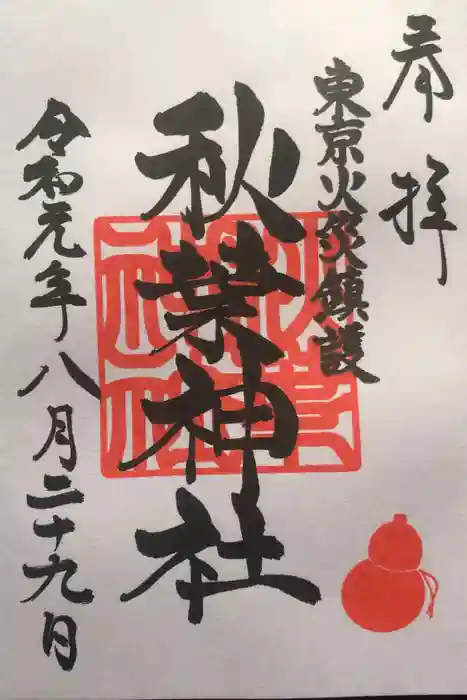 奉拝
東京火災鎮護
秋葉神社
令和元年八月二十九日